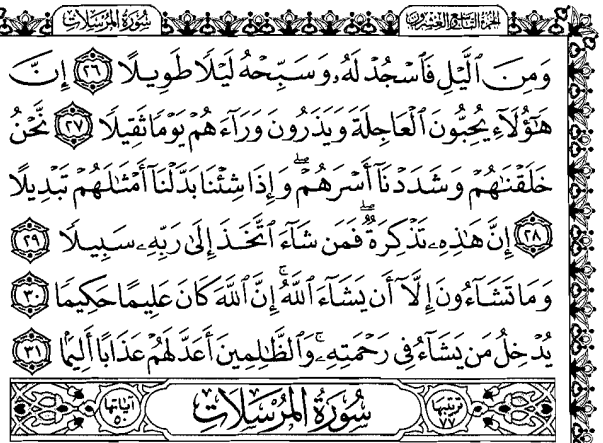 سُورَةُ المُرْسَلَات
الجزء التاسع والعشرون
وَمِنَ ٱلَّيۡلِ فَٱسۡجُدۡ لَهُۥ وَسَبِّحۡهُ لَيۡلٗا طَوِيلًا ٢٦ إِنَّ
هَٰٓؤُلَآءِ يُحِبُّونَ ٱلۡعَاجِلَةَ وَيَذَرُونَ وَرَآءَهُمۡ يَوۡمٗا ثَقِيلٗا ٢٧ نَّحۡنُ
خَلَقۡنَٰهُمۡ وَشَدَدۡنَآ أَسۡرَهُمۡۖ وَإِذَا شِئۡنَا بَدَّلۡنَآ أَمۡثَٰلَهُمۡ تَبۡدِيلًا
٢٨ إِنَّ هَٰذِهِۦ تَذۡكِرَةٞۖ فَمَن شَآءَ ٱتَّخَذَ إِلَىٰ رَبِّهِۦ سَبِيلٗا ٢٩
وَمَا تَشَآءُونَ إِلَّآ أَن يَشَآءَ ٱللَّهُۚ إِنَّ ٱللَّهَ كَانَ عَلِيمًا حَكِيمٗا ٣٠
يُدۡخِلُ مَن يَشَآءُ فِي رَحۡمَتِهِۦۚ وَٱلظَّٰلِمِينَ أَعَدَّ لَهُمۡ عَذَابًا أَلِيمَۢا ٣١
ترتيبها ٧٧ سُورَةُ المُرْسَلَات آياتها ٥٠